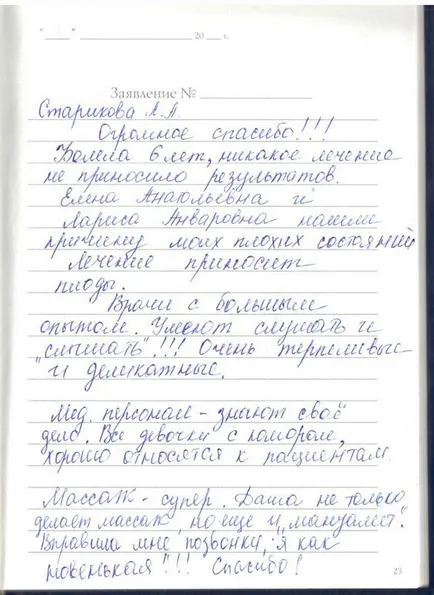 "____" ____________ 20 ___ г.
Заявление № ____________
Старикова А.А.
Огромное спасибо!!!
Болела 6 лет, никакое лечение
не приносило результатов.
Елена Анатольевна и
Лариса Анваровна нашли
причину моих плохих состояний
Лечение приносит
плоды.
Врачи с большим
опытом. Умеют слушать и
"слышать"!!! Очень терпеливые
и деликатные.
Мед. персонал - знают своё
дело. Все девочки с юмором,
хорошо относятся к пациентам.
Массаж - супер. Даша не только
делает массаж, но еще и "мануалист".
Вправила мне позвонки, я как
новенькая!!! Спасибо!
23